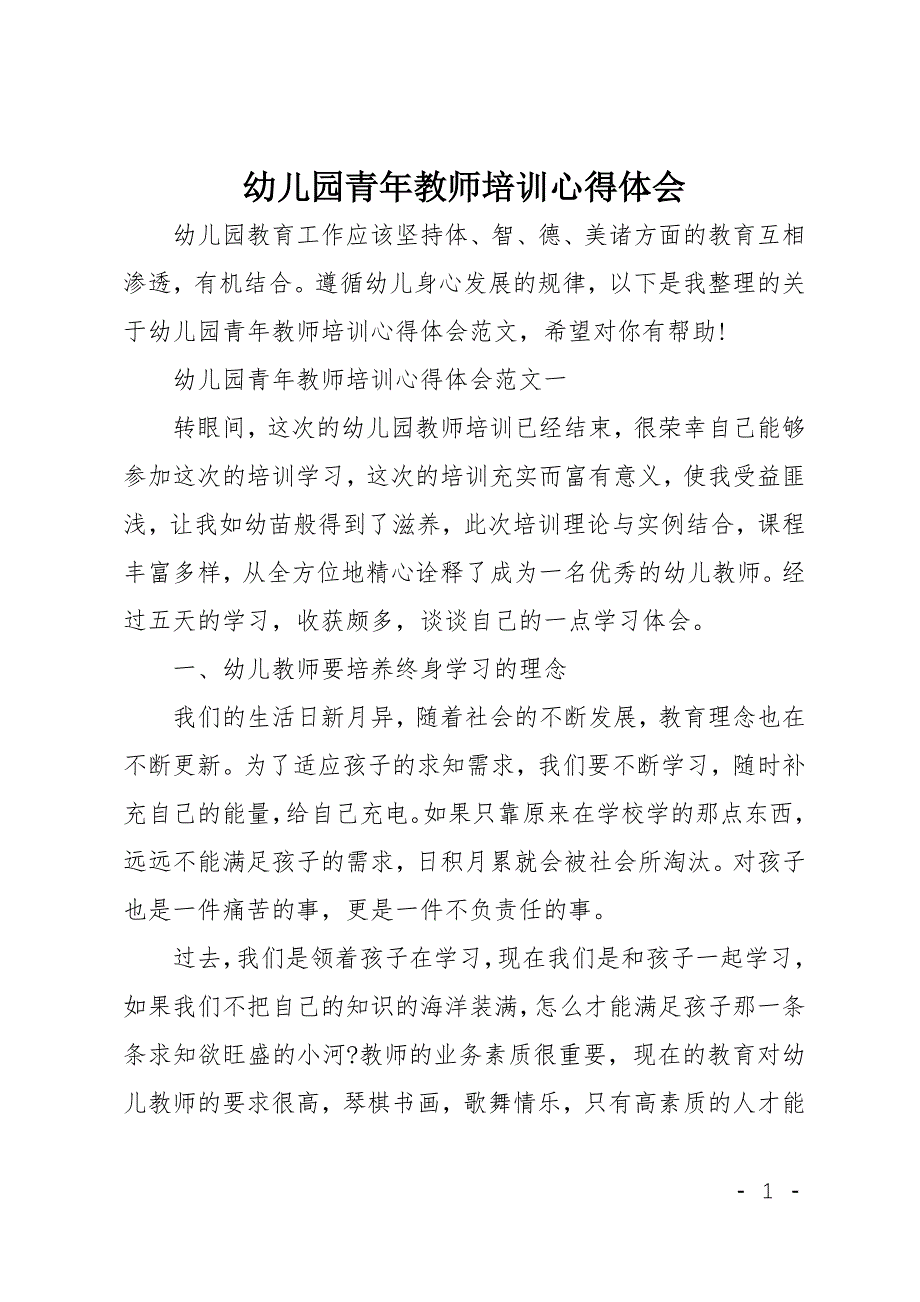 幼儿园青年教师培训心得体会
幼儿园教育工作应该坚持体、智、德、美诸方面的教育互相
渗透，有机结合。遵循幼儿身心发展的规律，以下是我整理的关
于幼儿园青年教师培训心得体会范文，希望对你有帮助!
幼儿园青年教师培训心得体会范文一
转眼间，这次的幼儿园教师培训已经结束，很荣幸自己能够
参加这次的培训学习，这次的培训充实而富有意义，使我受益匪
浅，让我如幼苗般得到了滋养，此次培训理论与实例结合，课程
丰富多样，从全方位地精心诠释了成为一名优秀的幼儿教师。经
过五天的学习，收获颇多，谈谈自己的一点学习体会。
一、幼儿教师要培养终身学习的理念
我们的生活日新月异，随着社会的不断发展，教育理念也在
不断更新。为了适应孩子的求知需求，我们要不断学习，随时补
充自己的能量，给自己充电。如果只靠原来在学校学的那点东西，
远远不能满足孩子的需求，日积月累就会被社会所淘汰。对孩子
也是一件痛苦的事，更是一件不负责任的事。
过去，我们是领着孩子在学习，现在我们是和孩子一起学习，
如果我们不把自己的知识的海洋装满，怎么才能满足孩子那一条
条求知欲旺盛的小河?教师的业务素质很重要，现在的教育对幼
儿教师的要求很高，琴棋书画，歌舞情乐，只有高素质的人才能
- 1 -